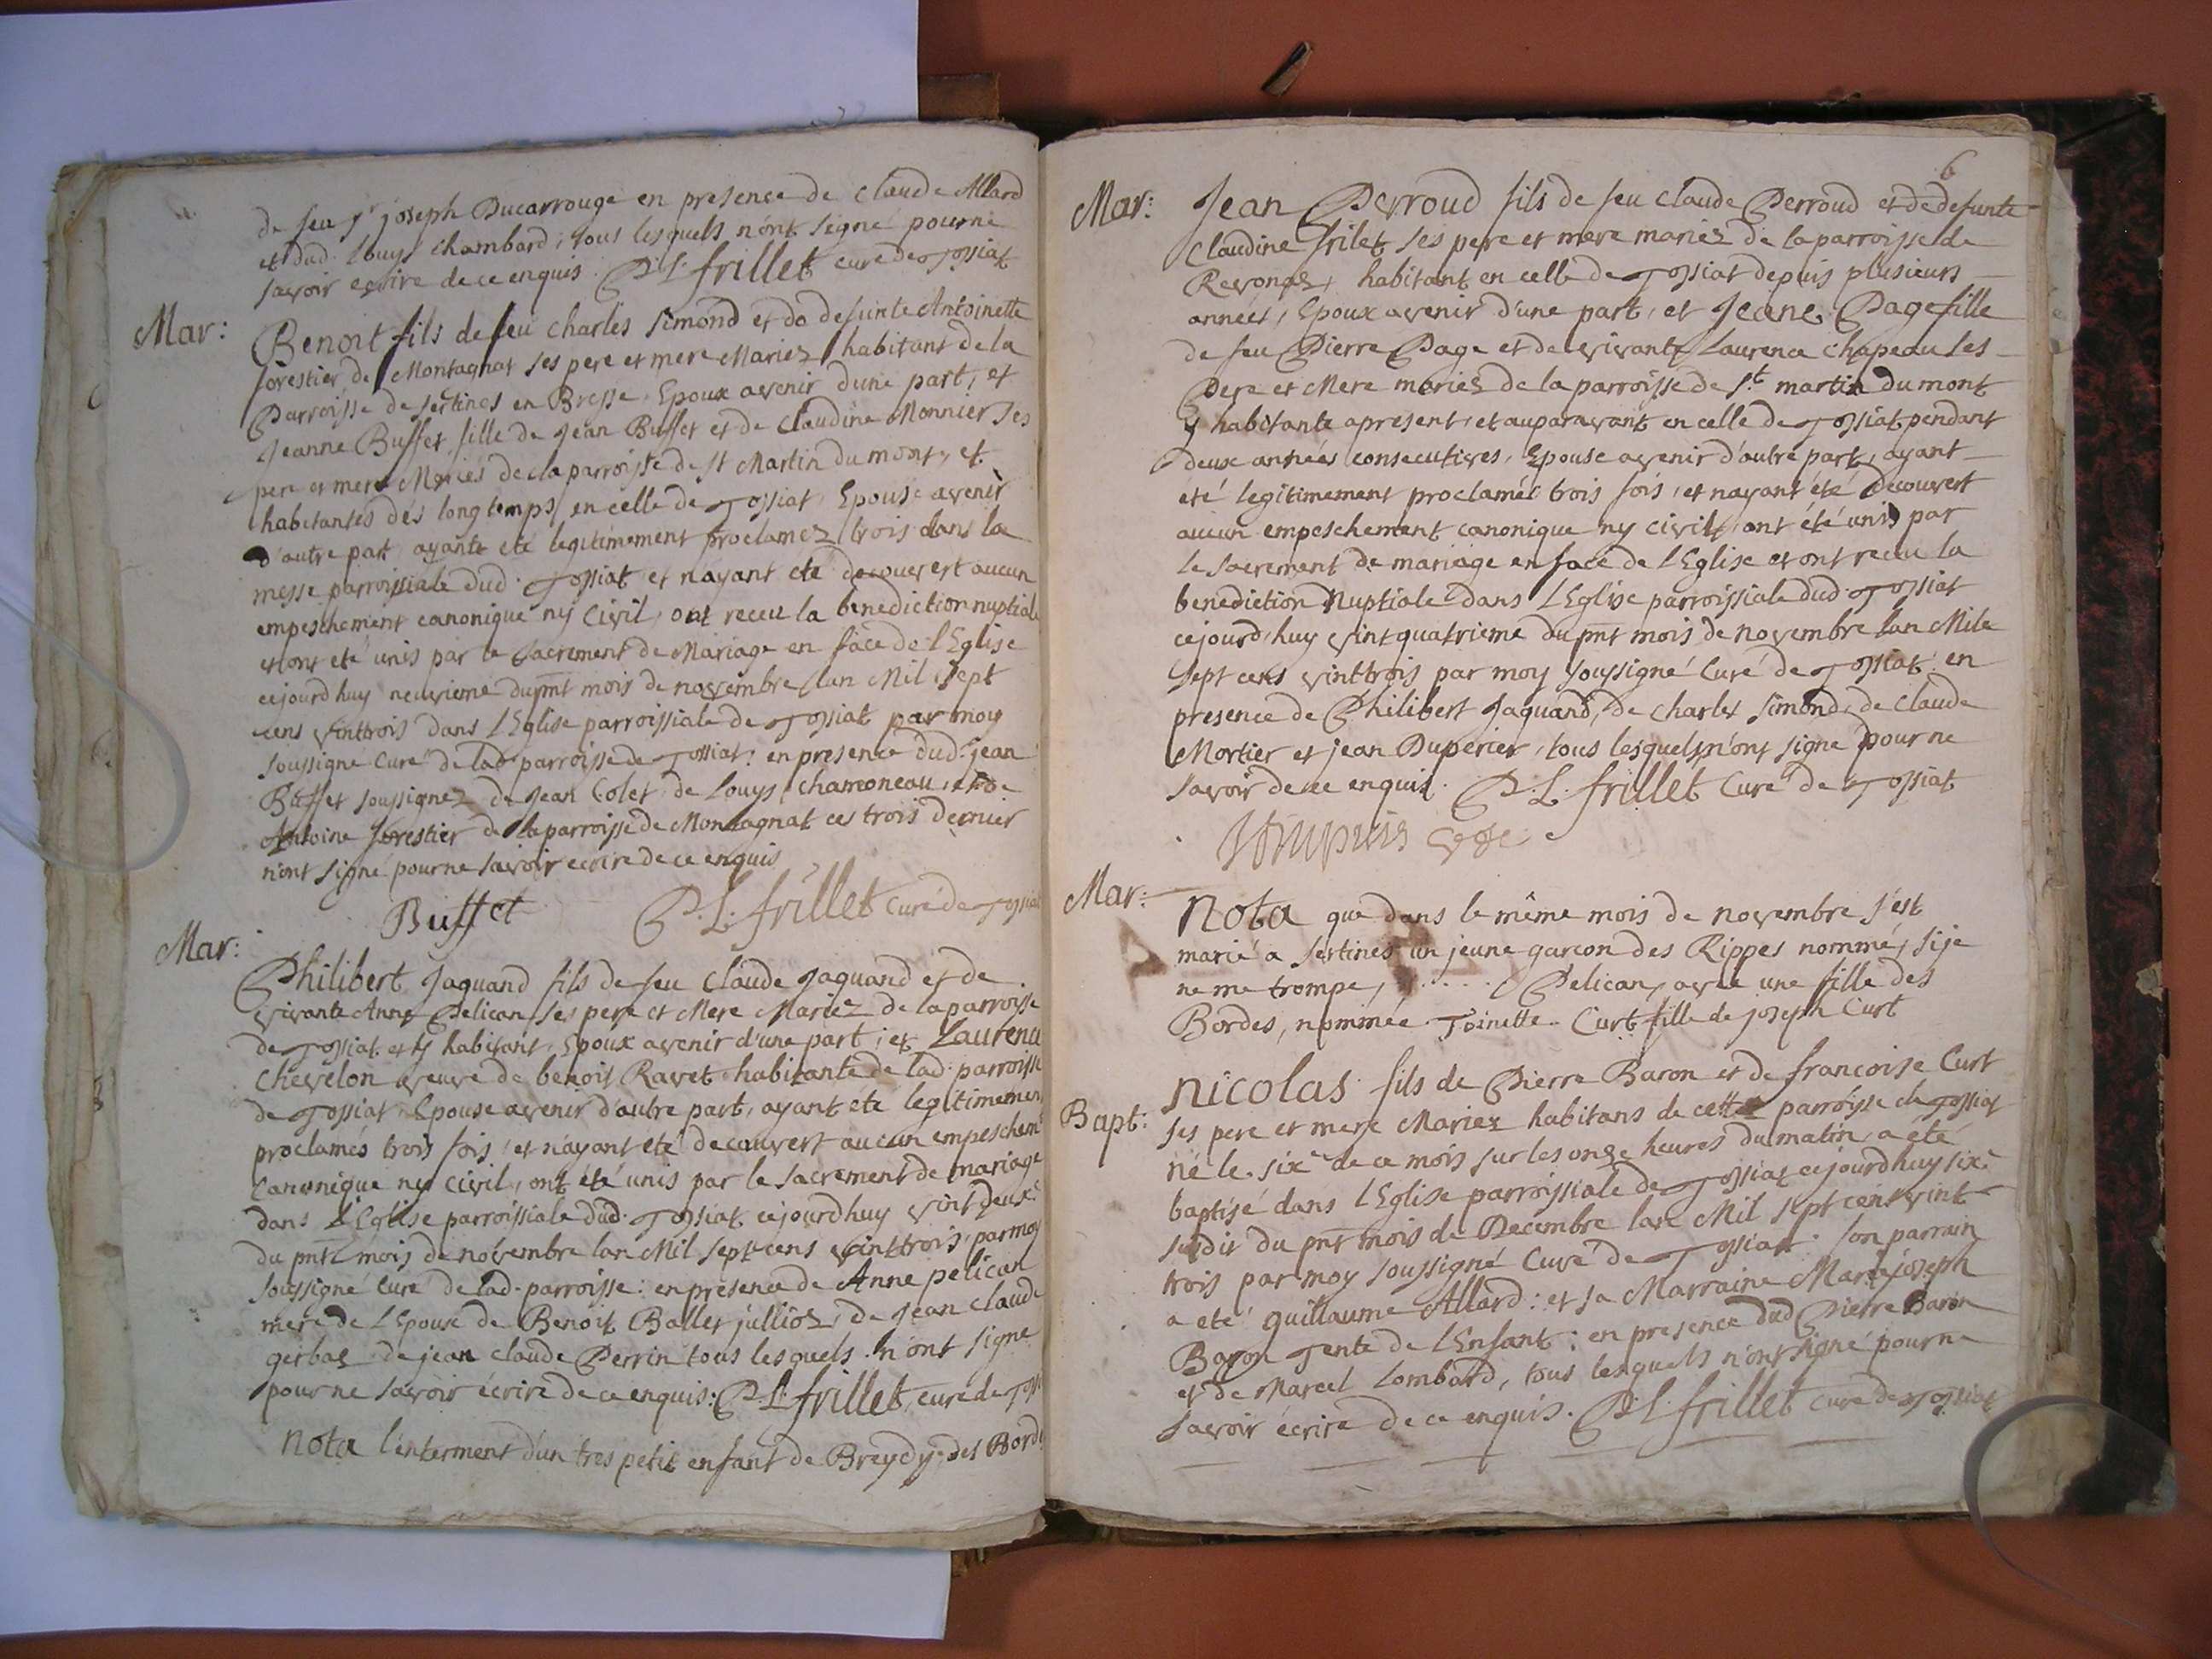 de feu Sr joseph Ducarrouge en presence de Claude Allard
et dud. Louys Chambard; tous lesquels n'ont signé pour ne
savoir ecrire de ce enquis. P. L. frillet curé de Tossiat
Mar: Benoit fils de feu Charles Simond et de defunte Antoinette
forestier de Montagnat ses pere et mere Mariez habitant de la
Parroisse de Sertines en Bresse, Epoux avenir d'une part, et
Jeanne Buffet fille de Jean Buffet et de Claudine Monnier ses
pere et mere Mariés de la parroisse de St Martin du mont, et
habitantes dés long temps en celle de Tossiat, Epouse avenir
d'autre part ayants eté legitimement proclamez trois dans la
messe parroissiale dud. Tossiat et nayant eté decouvert aucun
empeschement canonique ny Civil, ont receu la benediction nuptiale
et ont eté unis par le Sacrement de Mariage en face de l'Eglise
cejourdhuy neuvieme du pnt mois de novembre lan Mil sept
cens vinttrois dans l'Eglise parroissiale de Tossiat par moy
soussigné Curé de lad. parroisse de Tossiat: en presence dud. jean
Buffet soussignez de Jean Colet de Louys Chamoneau, et de
Antoine forestier de la parroisse de Montagnat ces trois dernier
n'ont signé pour ne savoir ecrire de ce enquis
Buffet P. L. frillet Curé de Tossiat
Mar:
Philibert Jaquand fils de feu Claude Jaquand et de
vivante Anne Pelican ses pere et Mere Mariez de la parroisse
de Tossiat et y habitant, Epoux avenir d'une part; et Laurence
Chevelon veuve de benoit Ravet habitante de lad. parroisse
de Tossiat Epouse avenir d'autre part, ayant eté legitimement
proclamés trois fois, et n'ayant eté decouvert aucun empeschemt
Canonique ny Civil, ont été unis par le Sacrement de mariage
dans L'Eglise parroissiale dud. Tossiat cejourdhuy vint deuxe
du pnt mois de novembre lan Mil sept cens vinttrois, par moy
soussigné Curé de lad. parroisse: en presence de Anne pelican
mere de l'Epoux de Benoit Ballet julliot, de Jean Claude
gerbaz de jean Claude Perrin tous lesquels n'ont signé
pour ne savoir écrire de ce enquis: P. L. frillet, curé de Toss
Nota l'enterment d'un tres petit enfant de Breydy des Bordes
6
Mar: Jean Perroud fils de feu Claude Perroud et de defunte
Claudine frilet ses pere et mere mariez de la parroisse de
Revonas, habitant en celle de Tossiat depuis plusieurs
années, Epoux avenir d'une part, et Jeane Page fille
de feu Pierre Page et de vivante Laurence Chapeau ses
Pere et Mere mariez de la parroisse de St martin du mont
y habitante apresent, et auparavant en celle de Tossiat pendant
deux années consecutives, Epouse avenir d'autre part, ayant
été legitimement proclamés trois fois, et nayant été decouvert
aucun empeschement canonique ny Civil, ont été unis par
le Sacrement de mariage en face de l'Eglise et ont receu la
benediction Nuptiale dans l'Eglise parroissiale dud. Tossiat
cejourd'huy vint quatrieme du pnt mois de novembre lan Mile
sept cens vinttrois par moy soussigné Curé de Tossiat: en
presence de Philibert Jaquand, de Charles Simond, de Claude
Mortier et jean Duperier, tous lesquels n'ont signe pour ne
savoir de ce enquis. P. L. frillet Curé de Tossiat
Mar: Nota que dans le même mois de novembre s'est
marié a Sertines un jeune garcon des Rippes nommé, si je
ne me trompe, ..... Pelican, avec une fille des
Bordes, nommée Toinette Curt fille de joseph Curt
Bapt: Nicolas fils de Pierre Baron et de francoise Curt
ses pere et mere Mariez habitans de cette parroisse de Tossiat
né le sixe de ce mois sur les onze heures du matin, a été
baptisé dans l'Eglise parroissiale de Tossiat cejourdhuy sixe
susdit du pnt mois de Decembre lan Mil sept cens vint
trois par moy soussigné Curé de Tossiat. Son parrain
a eté guillaume Allard: et sa Marraine Marie joseph
Baron Tente de l'Enfant: en presence dud Pierre Baron
et de Marcel Lombard, tous lesquels n'ont signé pour ne
savoir écrire de ce enquis. P. L. frillet curé de Tossiat